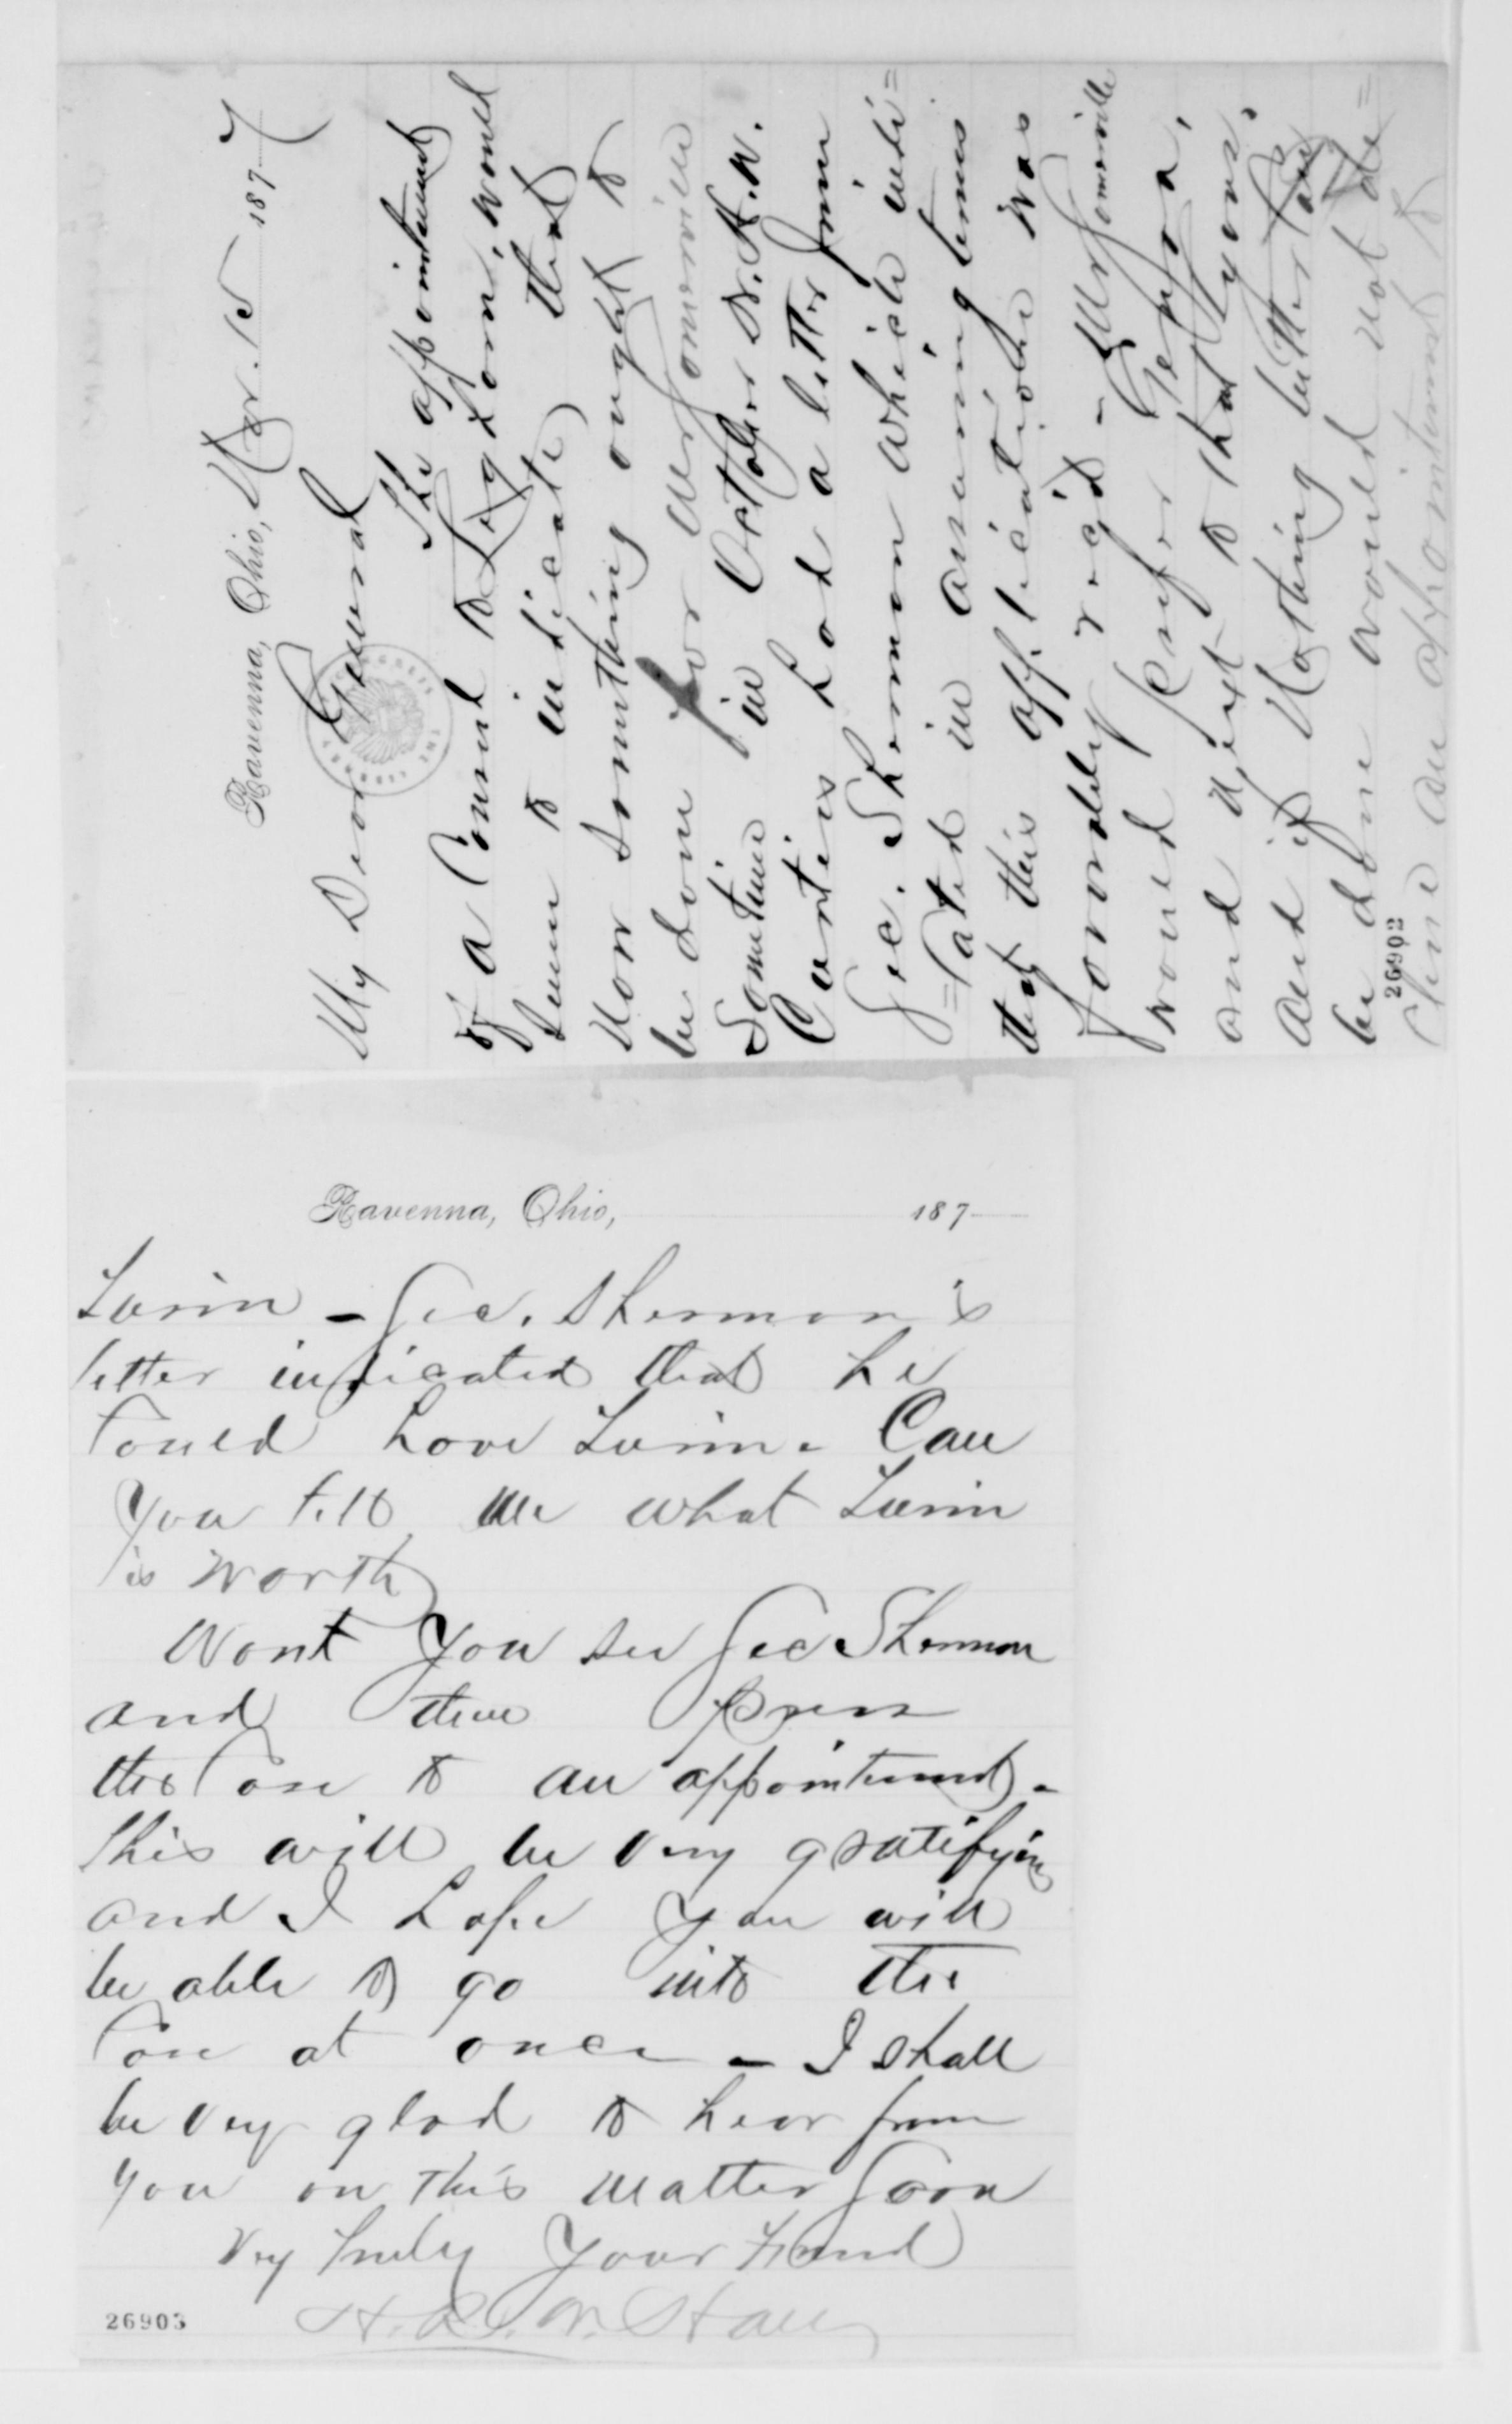 Ravenna, Ohio, Mar. 15 1877
My Dear General
The appointment
of a Consul to Leghorn, would
seem to indicate that
now something ought to
be done for Mr Somerville
Sometime in October D. A. W.
Curtis had a letter from
Sec. Sherman which inti=
=lated in assuring terms
that this application was
favorably rec'd - Mr Somerville
would prefer Genoa,
and next to that Lyons,
and if nothing better can
be done would not de=
cline an appointment to
26902
Ravenna, Ohio, 187
Turin - Sec. Sherman's
letter indicated that he
could have Turin. Can
you tell me what Turin
is worth
Wont you see Sec Sherman
and then press
this case to an appointment -
This will be very gratifying
and I hope you will
be able to go into the
case at once - I shall
be very glad to hear from
you on this matter soon
Very truly your friend
26903